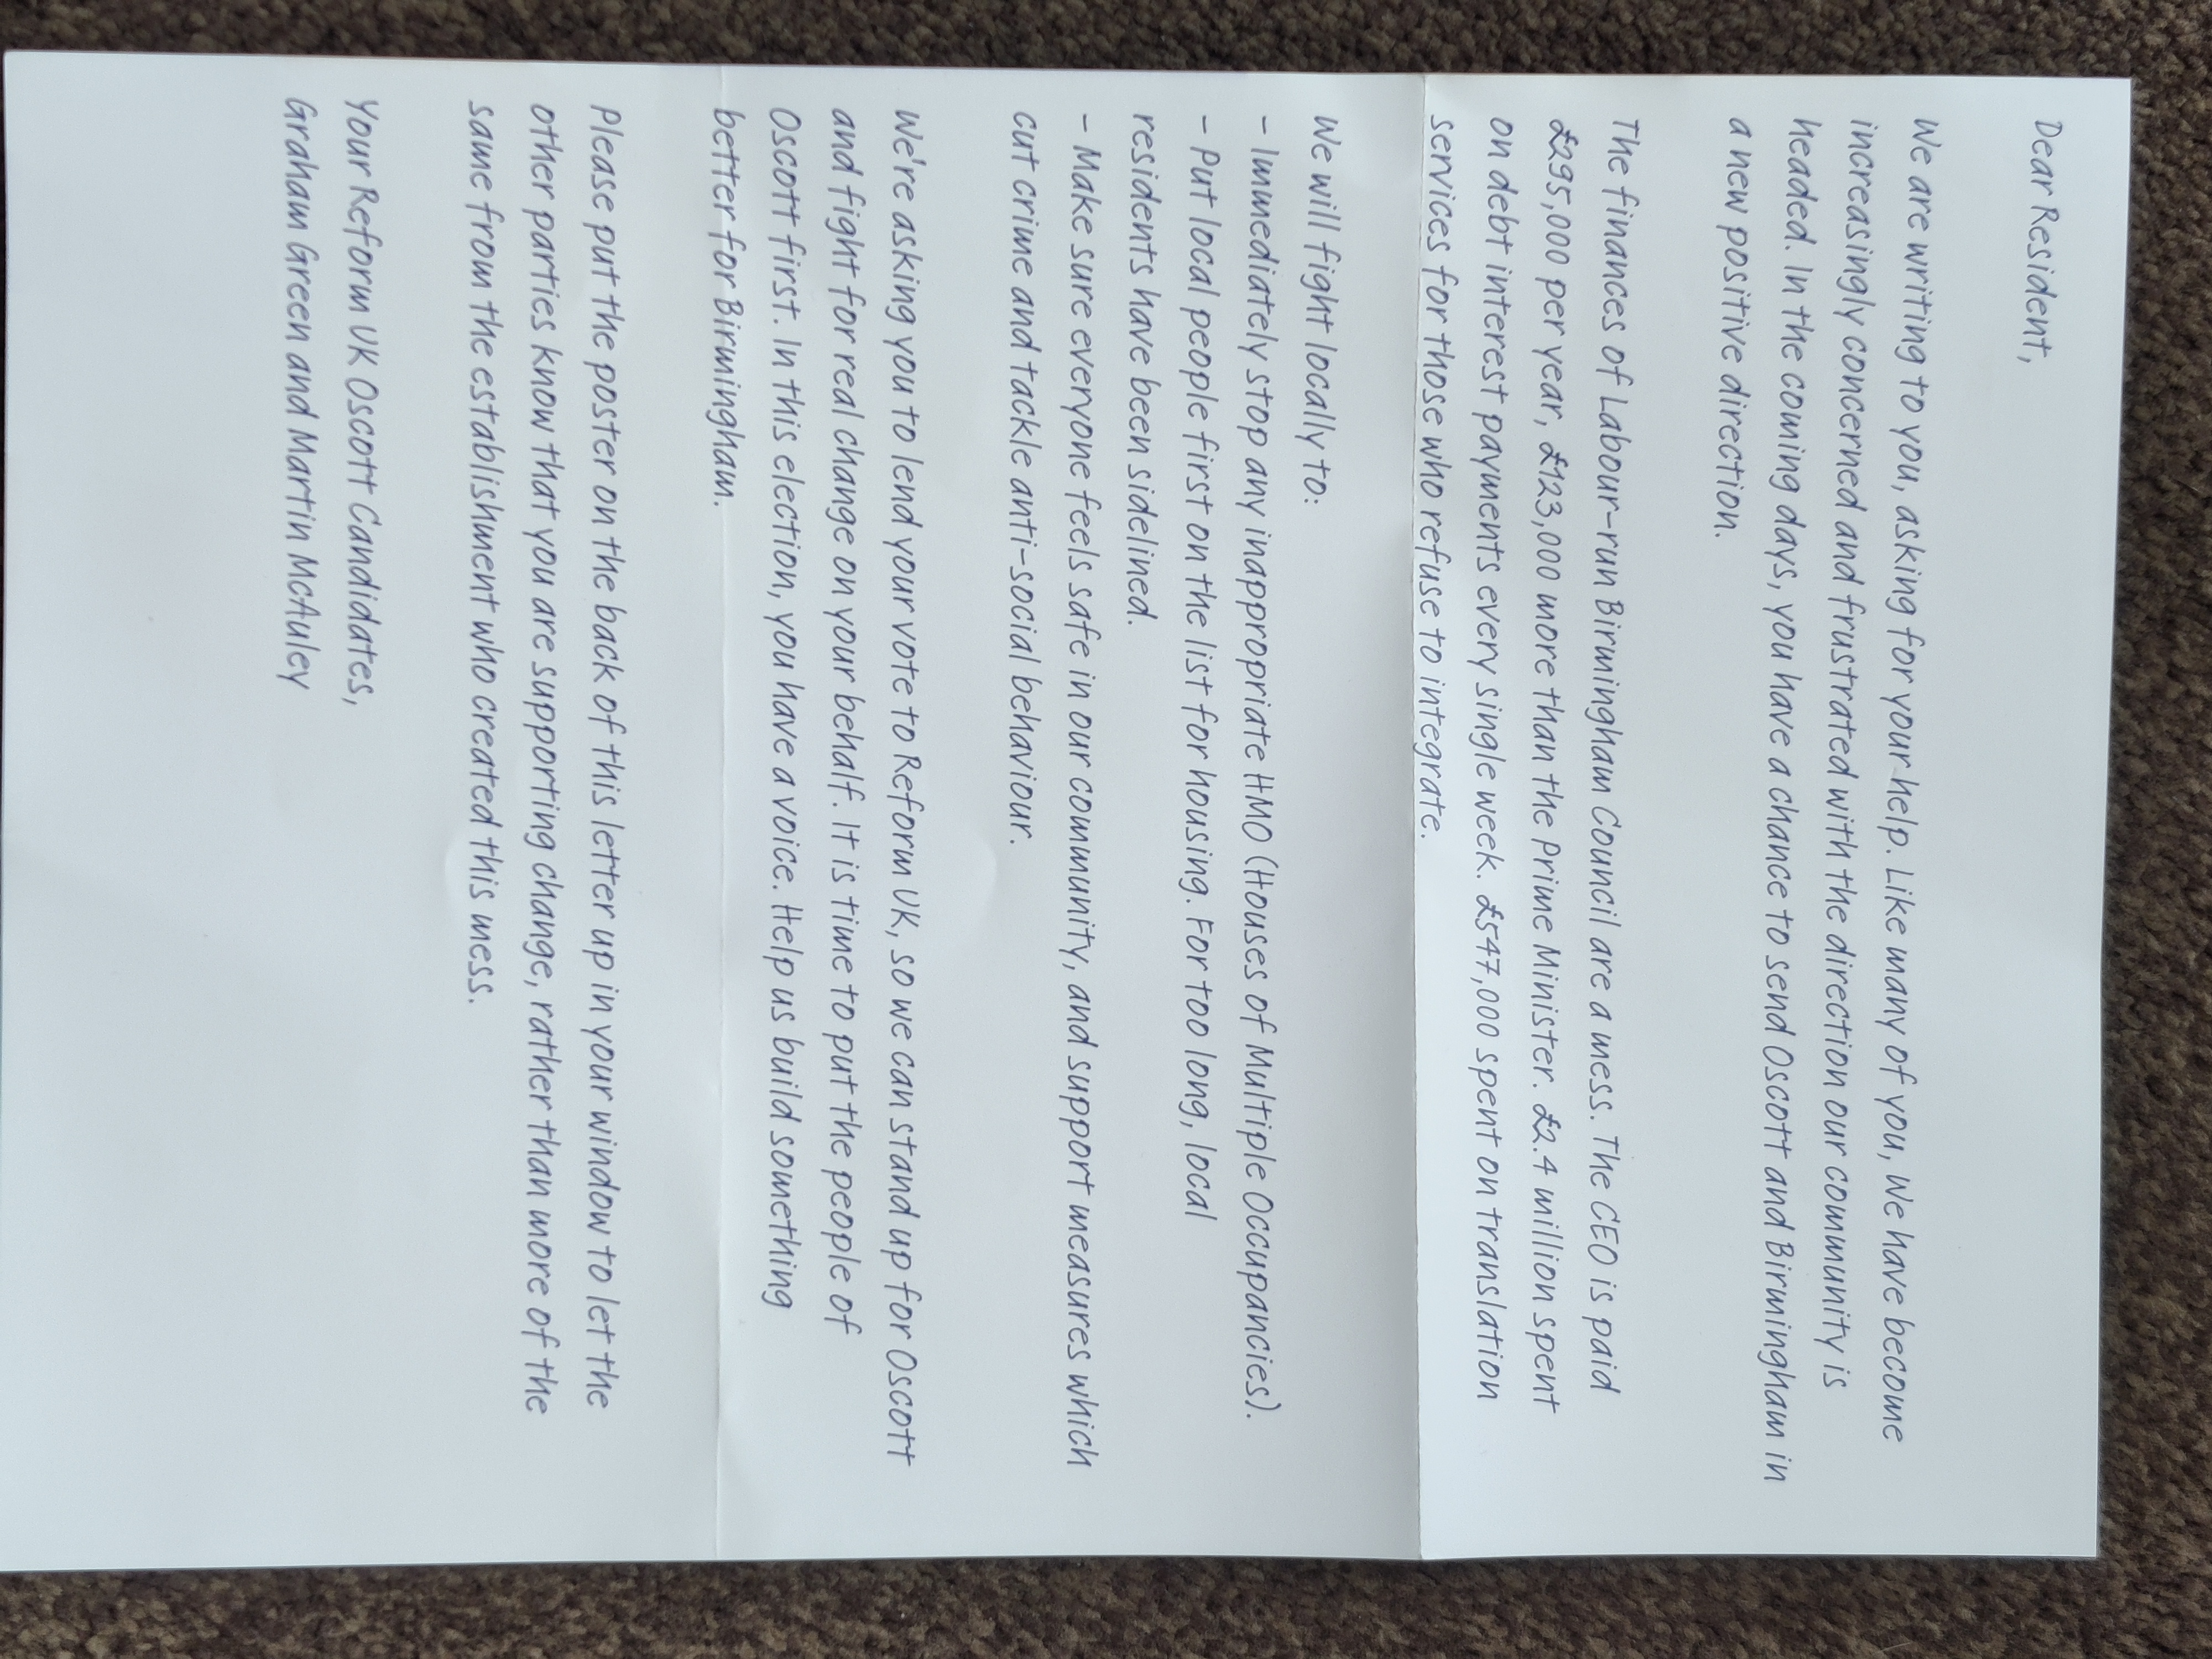 Dear Resident,
We are writing to you, asking for your help. Like many of you, We have become
increasingly concerned and frustrated with the direction our community is
headed. In the coming days, you have a chance to send Oscott and Birmingham in
a new positive direction.
The finances of Labour-run Birmingham Council are a mess. The CEO is paid
£295,000 per year, £123,000 more than the Prime Minister. £2.4 million spent
on debt interest payments every single week. £547,000 spent on translation
services for those who refuse to integrate.
We will fight locally to:
- Immediately stop any inappropriate HMO (Houses of Multiple Occupancies).
- Put local people first on the list for housing. For too long, local
residents have been sidelined.
- Make sure everyone feels safe in our community, and support measures which
cut crime and tackle anti-social behaviour.
We're asking you to lend your vote to Reform UK, so we can stand up for Oscott
and fight for real change on your behalf. It is time to put the people of
Oscott first. In this election, you have a voice. Help us build something
better for Birmingham.
Please put the poster on the back of this letter up in your window to let the
other parties know that you are supporting change, rather than more of the
same from the establishment who created this mess.
Your Reform UK Oscott Candidates,
Graham Green and Martin McAuley